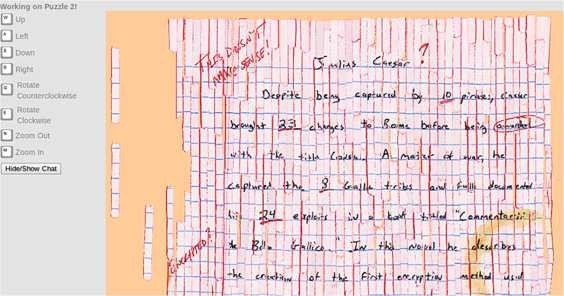 Working on Puzzle 2!
W Up
A Left
S Down
D Right
Rotate
Counterclockwise
E Rotate
Clockwise
Zoom Out
Zoom In
Hide/Show Chat
THIS DOESN'T
MAKE SENSE!
Julius Caesar ?
Despite being captured by 10 pirates, Caesar
brought 23 charges to Rome before being
with the title A master of war, he
captured the 8 Gallic tribes and fully documented
his 24 exploits in a book titled "Commentarii
de Bello Gallico." In this novel he describes
the creation of the first encryption method used